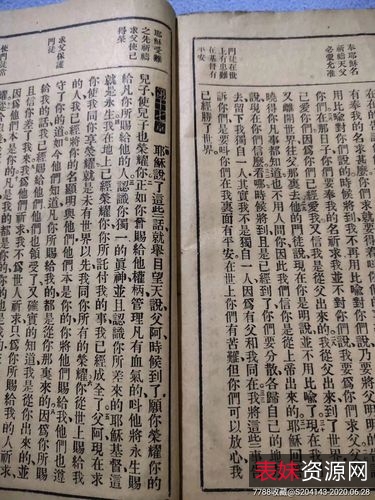 奉耶穌名
祈禱天父
必蒙允准
門徒在世
上有患難
在基督有
平安
有奉我的名求甚麼
用比喻對你們說乃要將父明明
們在那日子你們要奉我的名祈求我並不對你們說我要為你們求父
你們因為你們已經愛我又信我是從父出來的我從父出來到世界上
開世界往父那裏去他的門徒說如今你是明說並不用比喻了現在我
曉得你凡事都知道也不用人問你因此我們信你是從上帝出來的耶穌
說現在你們信麼看哪時候將到且是已經到了你們要分散各歸自己的地
去留下我獨自一人其實我不是獨自一人因為有父和我同在我將這些事
訴你們是要叫你們在我裏面有平安在世上你們有苦難但你們可以放心我
已經勝了世界
耶穌受難
之先祈禱
求父使己
得榮
求父保護
門徒
使門徒常
耶穌說了這些話就舉目望天說父阿時候到了願你榮耀你的
兒子使兒子也榮耀你正如你曾賜給他權柄管理凡有血氣的叫他將永生賜
給凡你所賜給他的人認識你獨一的眞神並且認識你所差來的耶穌基督這
就是永生我在地上已經榮耀你你所託付我的事我已經成全了父阿現在求
你使我同你享榮耀就是未有世界以先我同你所有的榮耀你從世上賜給我
的人我已經將你的名顯明與他們他們本是你的你將他們賜給我他們也遵
守了你的道如今他們知道凡你所賜給我的都是從你那裏來的因為你所賜
給我的話我已經賜給他們他們也領受了又確實的知道我是從你出來的並
且信你差了我來我為他們祈求我不為世人祈求只為你所賜給我的人祈求
因為他們本是你的凡是我的都是你的
表妹资源网
7788收藏@S204143-2020.06.28